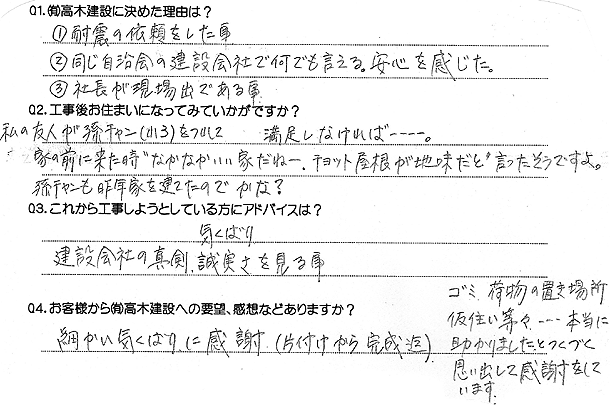 Q1.㈲高木建設に決めた理由は?
① 耐震の依頼をした事
② 同じ自治会の建設会社で何でも言える。安心を感じた。
③ 社長が現場出である事
Q2.工事後お住まいになってみていかがですか?
私の友人が孫チャン(小3)をつれて 満足しなければ----。
家の前に来た時"なかなかいい家だねー、チョット屋根が地味だと"言ったそうですよ。
孫チャンも昨年家を建てたのでかな?
Q3.これから工事しようとしている方にアドバイスは?
気くばり
建設会社の真剣、誠実さを見る事
Q4.お客様から㈲高木建設への要望、感想などありますか?
細かい気くばりに感謝(片付けから完成迄)
ゴミ、荷物の置き場所
仮住い等々、---本当に
助かりましたとつくづく
思い出して感謝をして
います。